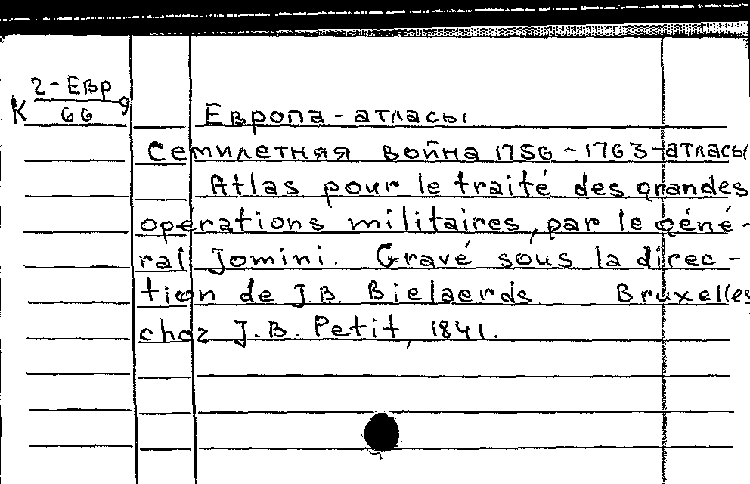 2-Евр
К 66 9
Европа-атласы
Семилетняя война 1756-1763-атласы
Atlas pour le traité des grandes
operations militaires, par le géné-
ral Jomini. Gravé sous la direc-
tion de J.B. Bielaerds Bruxelles
chez J.B. Petit, 1841.